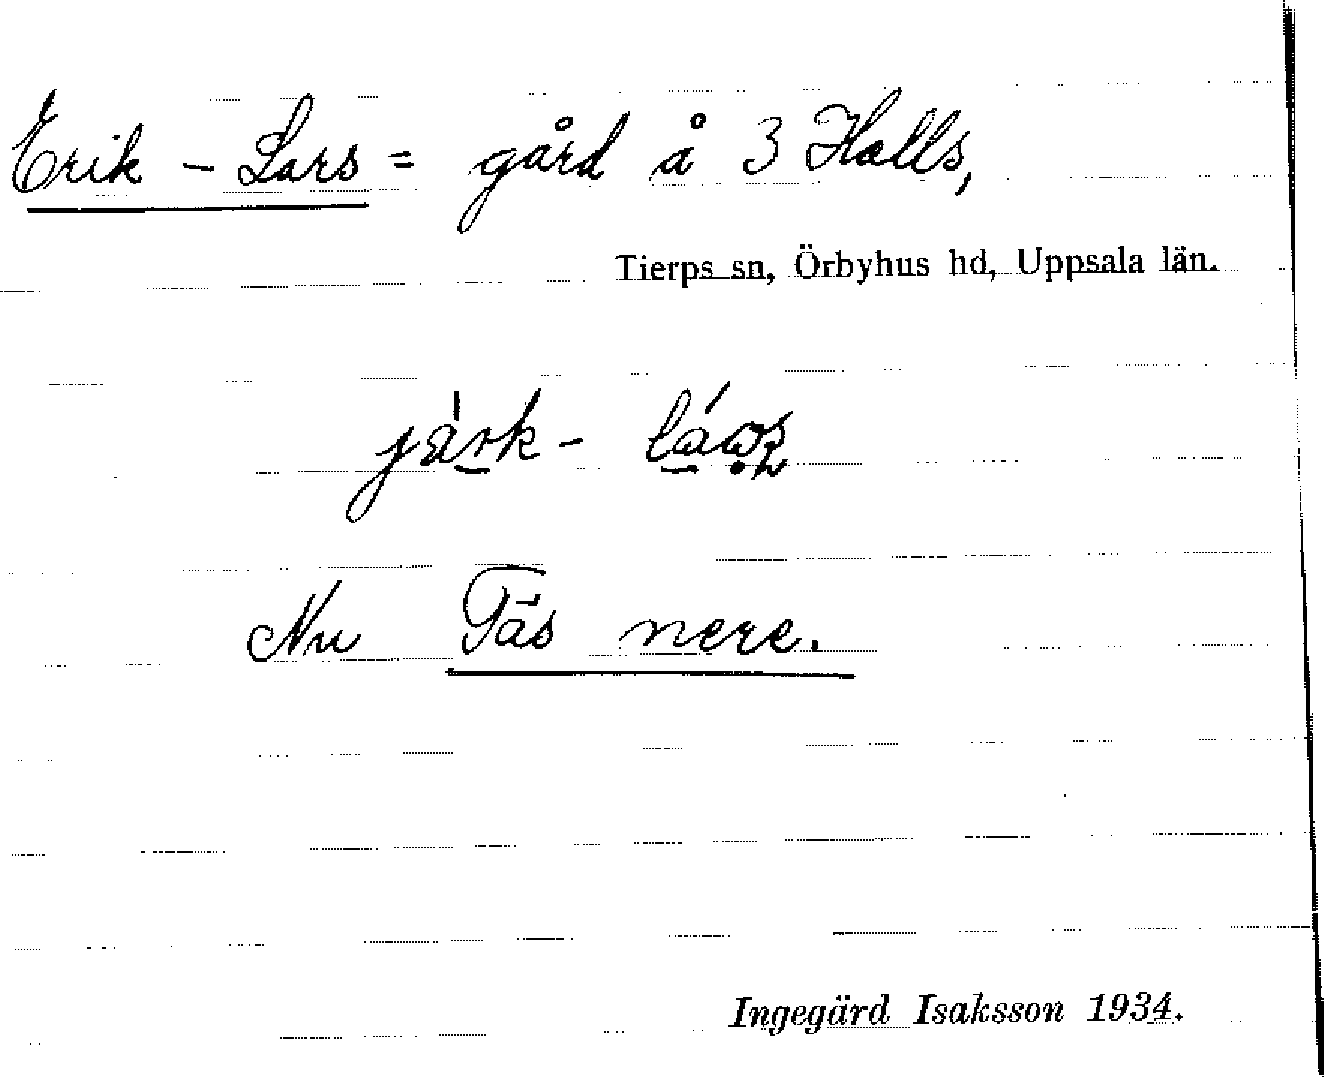 Erik - Lars = gård å 3 Halls,
Tierps sn, Örbyhus hd, Uppsala län.
Nu Täs nere.
Ingegärd Isaksson 1934.